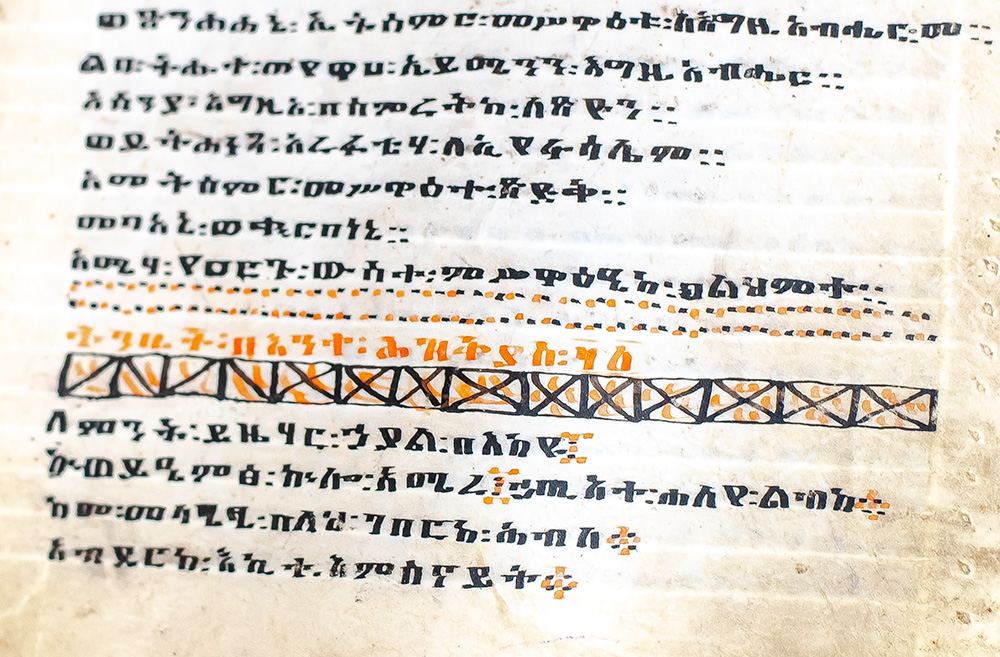 ወጽንሐሐኒ፡ኢትሰምር፡መሥዋዕተ፡ለእግዚአብሔር፡መ።
ልበ፡ትሑተ፡ወየዋሀ፡ኢይሜንን፡እግዚአብሔር።
አሰንያ፡እግዚኦ፡በስምረትከ፡ለጽዮን።
ወይትሐነጻ፡አረፋቲሃ፡ለኢየሩሳሌም።
አመ፡ትሰምር፡መሥዋዕተ፡ጽድቅ።
መባአኒ፡ወቍርባነኒ።
አሜሃ፡የዐርጉ፡ውስተ፡ምሥዋዒከ፡አልህምተ።
ትንቢት፡በእንተ፡ሕዝቅያስ፡
ለምንት፡ይዜሃር፡ኃያል፡በእከዩ፨
ወይዔምፅ፡ኵሎ፡አሚረ፨ኃጢአተ፡ሐለየ፡ልብከ፨
ከመ፡መላጼ፡በሊህ፡ገበርከ፡ሕብለ፨
አብደርከ፡እኪተ፡እምሰናይት፨